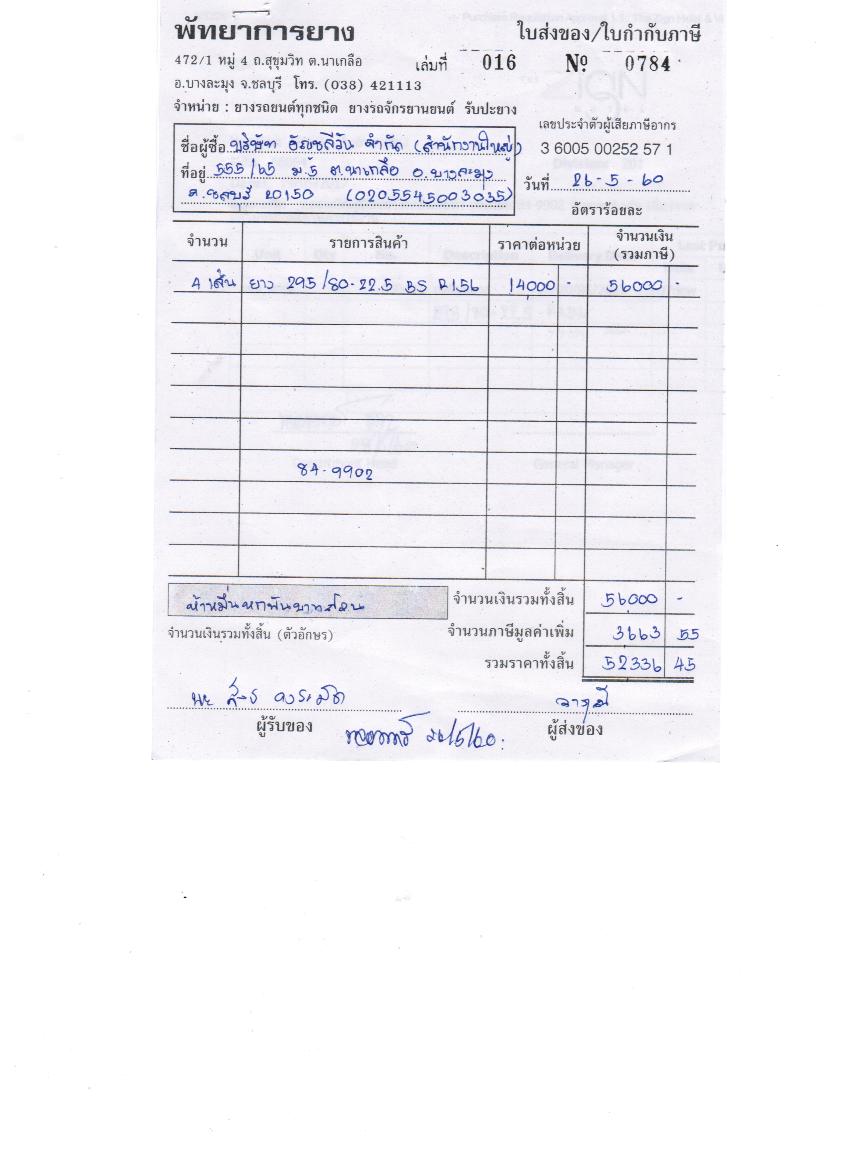 พัทยาการยาง
ใบส่งของ/ใบกำกับภาษี
472/1 หมู่ 4 ถ.สุขุมวิท ต.นาเกลือ
เล่มที่ 016 Nº 0784
อ.บางละมุง จ.ชลบุรี โทร. (038) 421113
จำหน่าย : ยางรถยนต์ทุกชนิด ยางรถจักรยานยนต์ รับปะยาง
เลขประจำตัวผู้เสียภาษีอากร
3 6005 00252 57 1
ชื่อผู้ซื้อ บริษัท อัญชลีวัน จำกัด (สำนักงานใหญ่)
ที่อยู่ 555/65 ม.5 ต.นาเกลือ อ.บางละมุง
จ.ชลบุรี 20150 (0205545003035)
วันที่ 26-5-60
อัตราร้อยละ
จำนวน รายการสินค้า ราคาต่อหน่วย จำนวนเงิน (รวมภาษี)
4 เส้น ยาง 295/80-22.5 BS R156 14000 - 56000 -
84-9902
ห้าหมื่นหกพันบาทถ้วน
จำนวนเงินรวมทั้งสิ้น 56000 -
จำนวนเงินรวมทั้งสิ้น (ตัวอักษร)
จำนวนภาษีมูลค่าเพิ่ม 3663 55
รวมราคาทั้งสิ้น 52336 45
ผู้รับของ
ผู้ส่งของ
26/5/60